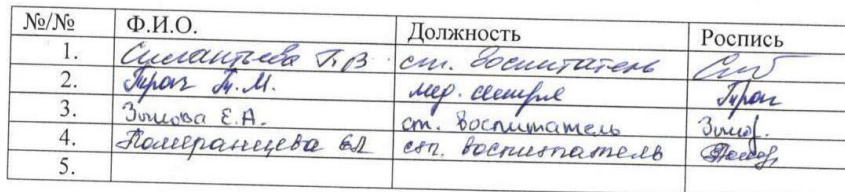 №/№ Ф.И.О. Должность Роспись
1. Силантьева Т.В. ст. воспитатель
2. Трач Т.М. мед. сестра Трач
3. Зимова Е.А. ст. воспитатель Зимов.
4. Померанцева Е.Л. ст. воспитатель
5.